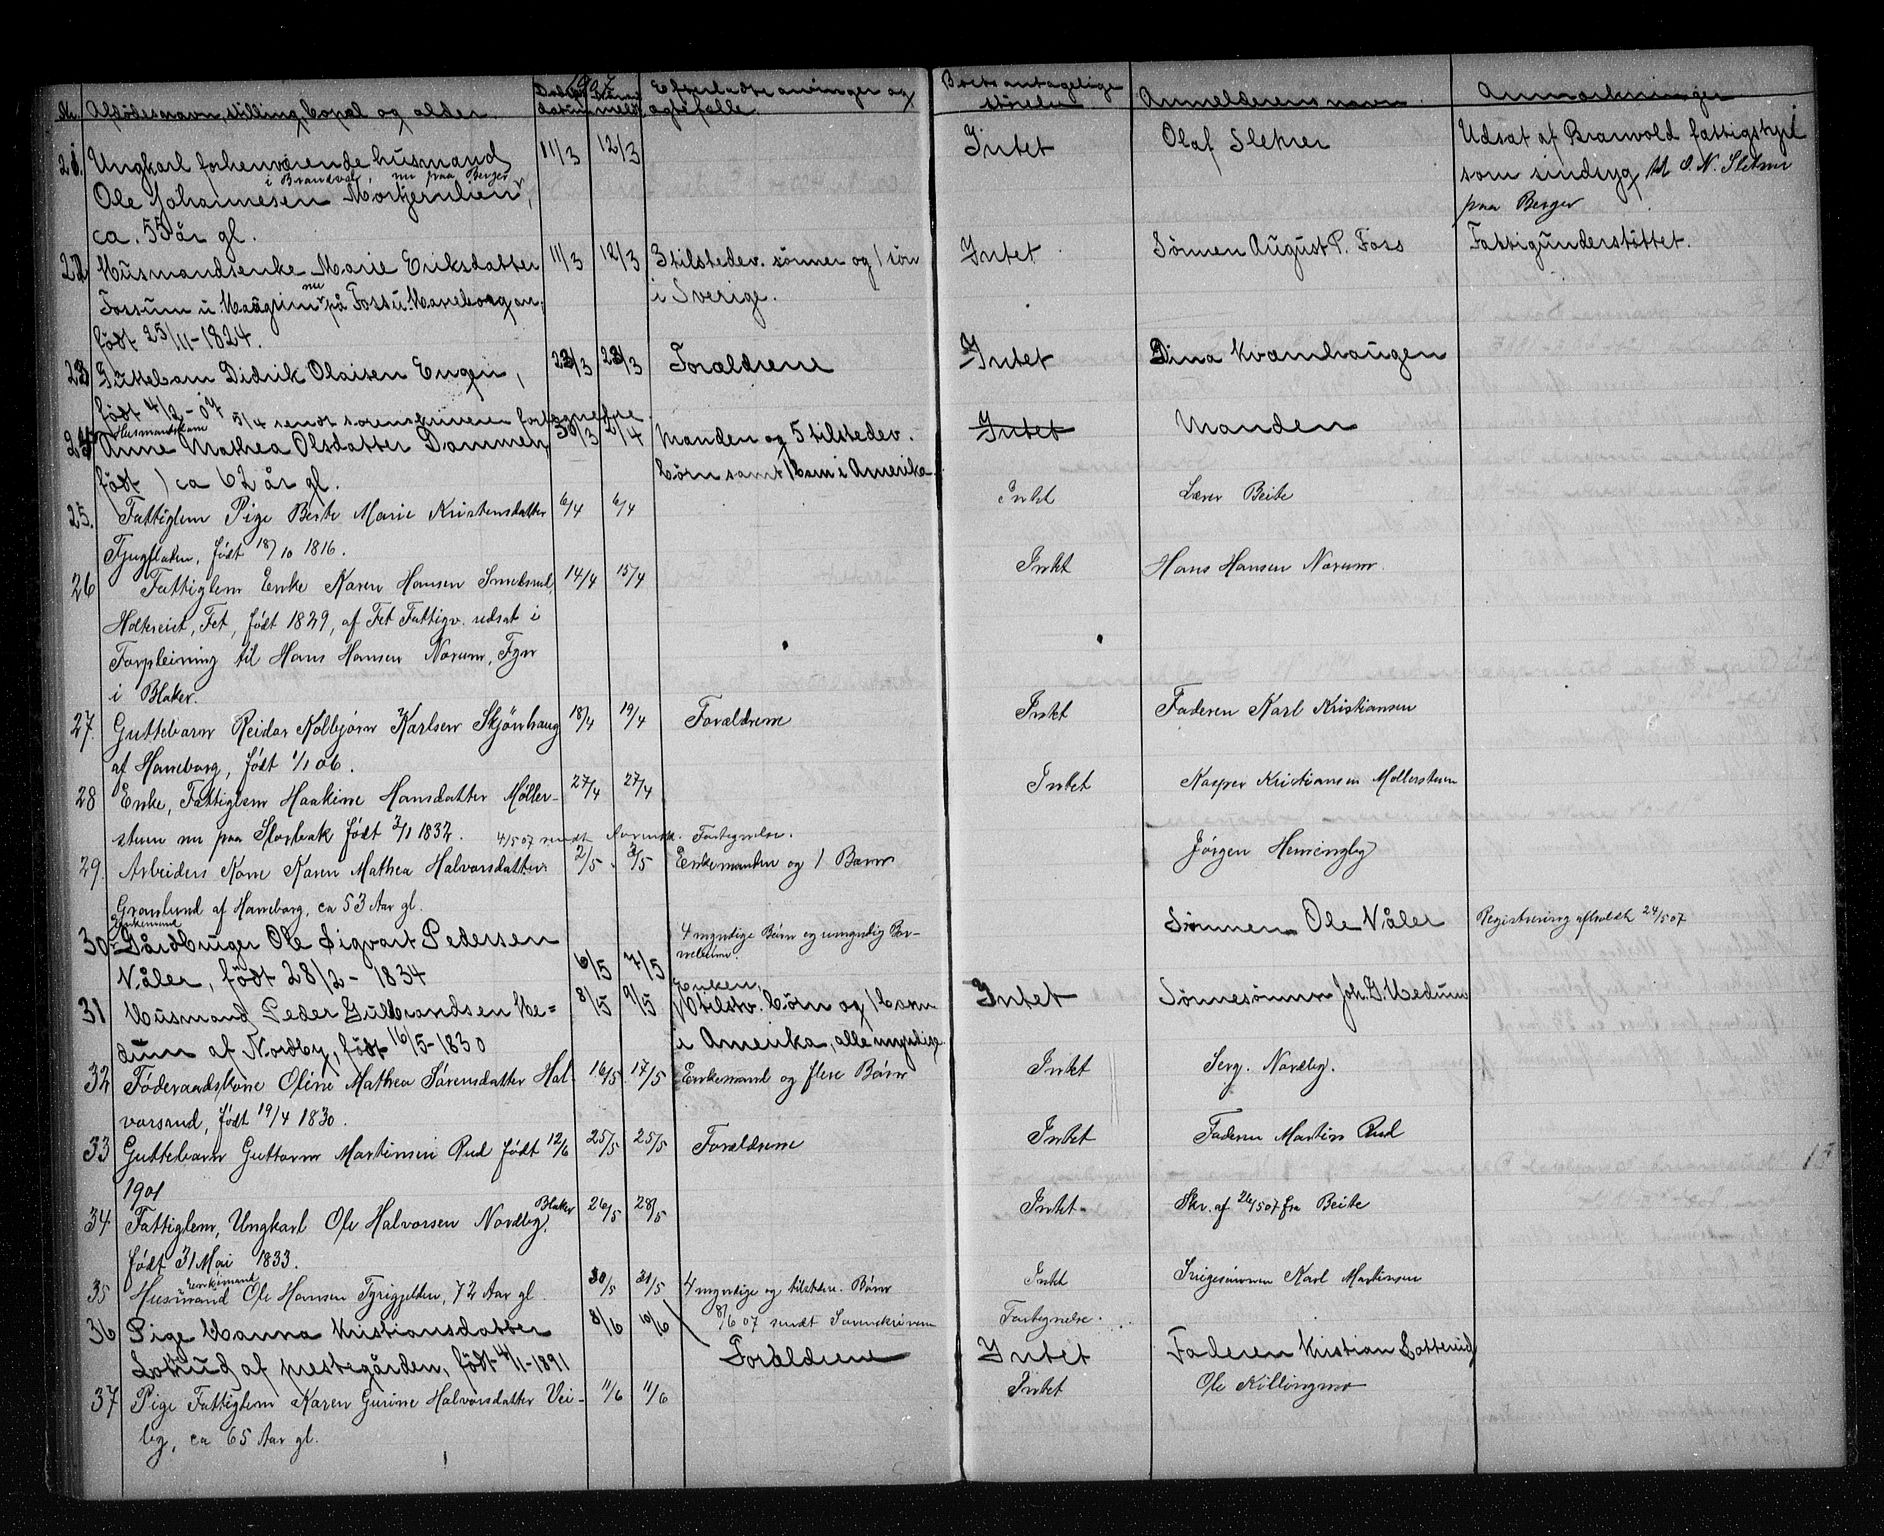 1907
No. Afdødes navn, stilling, bopæl og alder. Døds datum Anmeldt Efterladte arvinger og Boets antagelige størelse Anmelderens navn Anmærkninger
21. Ungkarl forhenværende husmand 11/3 12/3 Intet Olaf Sletner Udsat af Branvold fattigstyr
i Brandval, nu paa Berger som sindsyg til O. N. Sletner
Ole Johannesen Mortjernlien, paa Berger
ca. 55 år gl.
22 Husmandsenke Marie Eriksdatter 11/3 12/3 3 tilstedev. sønner og 1 søn Intet Sønnen August P. Foss Fattigunderstöttet.
Fossum u. nu på Foss u. Haneborg an. i Sverige.
født 25/11-1824.
23 Guttebarn Didrik Olaisen Engen, /3 /3 Forældrene Intet Dina Kvamhaugen
født 4/2-07 5/4 sendt sorenskriveren fortegnelse.
Husmandskone
24 Anne Mathea Olsdatter Dammen, 30/3 2/4 Manden og 5 tilstedev. Intet Manden
født ) ca 62 år gl. børn samt 1 barn i Amerika
25. Fattiglem Pige Berte Marie Kristensdatter 6/4 6/4 Intet Lærer Beite
født 18/10 1816.
26 Fattiglem Enke Karen Hansen 14/4 15/4 Intet Hans Hansen Norum.
Fet, født 1829, af Fet Fattigv. udsat i
Forpleining til Hans Hansen Norum,
i Blaker.
27. Guttebarn Reidar Kolbjørn Karlsen Skjønhaug 18/4 19/4 Forældrene Intet Faderen Karl Kristiansen
af Haneborg, født 1/1 06.
28 Enke, Fattiglem Haakine Hansdatter Møller- 27/4 27/4 Intet Kasper Kristiansen Møllerstuen
stuen nu paa født 3/1 1832. 4/5 07 sendt Sorensk. Fortegnelse.
29. Arbeiders Kone Karen Mathea Halvorsdatter 2/5 3/5 Enkemanden og 1 Barn Jørgen Hemingby
Granlund af Haneborg, ca 53 Aar gl.
Enkemand
30 Gårdbruger Ole Sigvart Pedersen 6/5 7/5 4 myndige Børn og umyndig Bar- Sønnen Ole Våler Registrering afholdt 24/5 07
Våler, født 28/2-1834 nebørn.
Enken,
31 Husmand Peder Gulbrandsen He= 8/5 9/5 tilstv. børn og 1 barn Intet Sønnesønnen Joh. G. Hedum
dum af Nordby, født 16/5-1830 i Amerika, alle myndige
32 Føderaadskone Oline Mathea Sørensdatter Hal- 16/5 17/5 Enkemand og flere Børn Intet Serg. Nordby.
vorsrud, født 19/4 1830.
33 Guttebarn Guttorm Martinsen Rud født 12/6 25/5 25/5 Forældrene Intet Faderen Martin Rud
1901
34 Fattiglem, Ungkarl Ole Halvorsen Nordby, Blaker 26/5 28/5 Intet Skr. af 26/5 07 fra Beite
født 31 Mai 1833.
Enkemand
35 Husmand Ole Hansen Tyrigjelden, 72 Aar gl. 30/5 31/5 4 myndige og tilstedev. Børn Intet Svigersønnen Karl Martinsen
8/6 07 sendt Sorenskriveren Fortegnelse.
36 Pige Hanna Kristiansdatter 8/6 10/6 Forældrene Intet Faderen Kristian Lotterud
Lotterud af prestegården, født 4/1-1891
37 Pige Fattiglem Karen Gurine Halvorsdatter Vei- 11/6 11/6 Intet Ole Killingmo
by, ca 65 Aar gl.